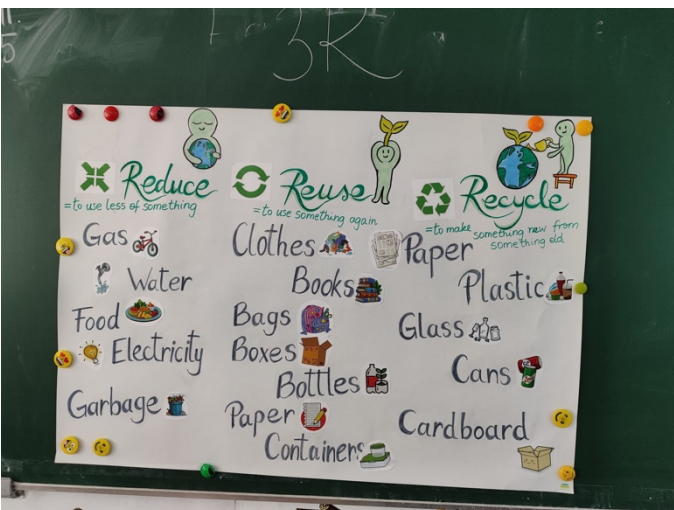 3R
Reduce
=to use less of something
Gas
Water
Food
Electricity
Garbage
Reuse
=to use something again
Clothes
Books
Bags
Boxes
Bottles
Paper
Containers
Recycle
=to make something new from
something old
Paper
Plastic
Glass
Cans
Cardboard